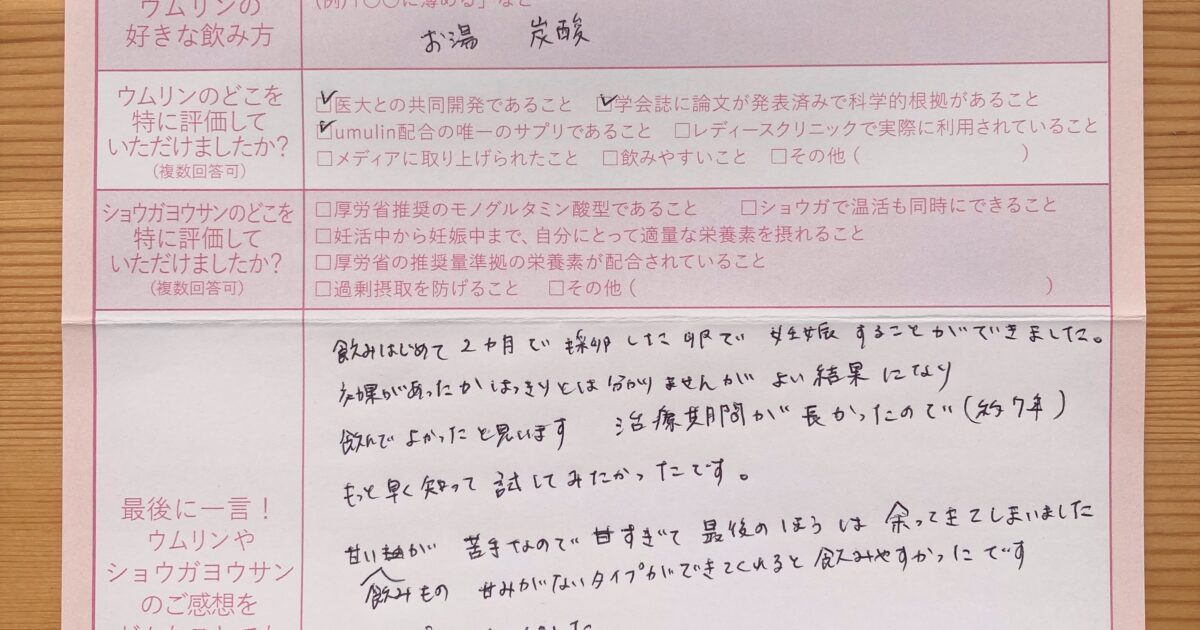 ウムリンの
好きな飲み方
(例)「〇〇に薄める」など
お湯 炭酸
ウムリンのどこを
特に評価して
いただけましたか?
(複数回答可)
☑医大との共同開発であること ☑学会誌に論文が発表済みで科学的根拠があること
☑umulin配合の唯一のサプリであること □レディースクリニックで実際に利用されていること
□メディアに取り上げられたこと □飲みやすいこと □その他( )
ショウガヨウサンのどこを
特に評価して
いただけましたか?
(複数回答可)
□厚労省推奨のモノグルタミン酸型であること □ショウガで温活も同時にできること
□妊活中から妊娠中まで、自分にとって適量な栄養素を摂れること
□厚労省の推奨量準拠の栄養素が配合されていること
□過剰摂取を防げること □その他( )
最後に一言!
ウムリンや
ショウガヨウサン
のご感想を
飲みはじめて2カ月で採卵した卵で妊娠することができました。
効果があったかはっきりとは分かりませんがよい結果になり
飲んでよかったと思います 治療期間が長かったので(約7年)
もっと早く知って試してみたかったです。
甘いが 苦手なので甘すぎて最後のほうは余ってきてしまいました
飲みもの 甘みがないタイプができてくれると飲みやすかったです